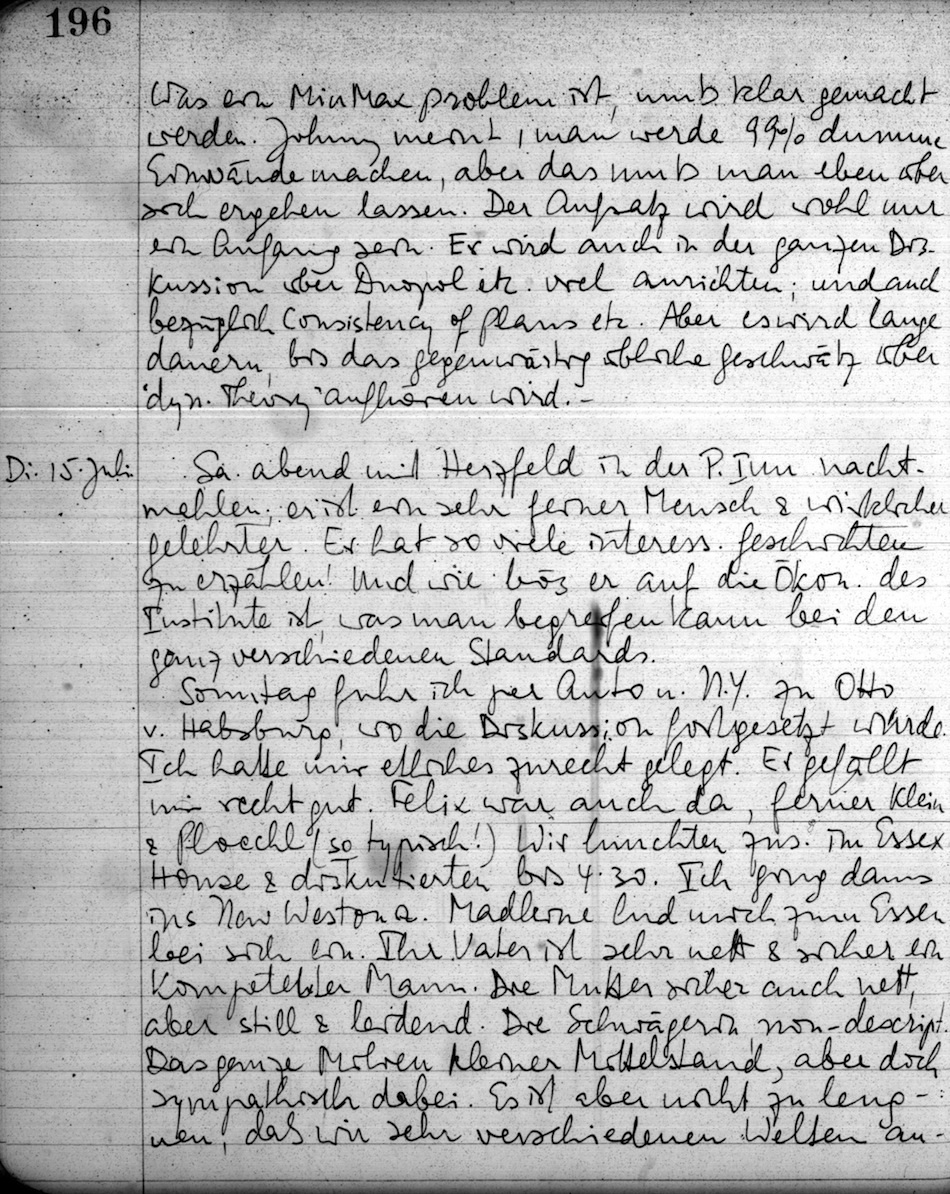 196
Was ein MinMax problem ist, muß klar gemacht
werden. Johnny meint, man werde 99% dumme
Einwände machen, aber das muß man eben über
sich ergehen lassen. Der Aufsatz wird wohl nur
ein Anfang sein. Er wird auch in der ganzen Dis-
kussion über Duopol etc. viel anrichten; und auch
bezüglich Consistency of plans etc. Aber es wird lange
dauern, bis das gegenwärtig übliche Geschwätz über
"dyn. Theory" aufhören wird. –
Di. 15. Juli Sa. abend mit Herzfeld in der P. Inn nacht-
mahlen; er ist ein sehr feiner Mensch & wirklicher
gelehrter. Er hat so viele interess. Geschichten
zu erzählen! Und wie bös er auf die Ökon. des
Institute ist, was man begreifen kann bei den
ganz verschiedenen Standards.
Sonntag fuhr ich per Auto n. N.Y. zu Otto
v. Habsburg, wo die Diskussion fortgesetzt wurde.
Ich hatte mir etliches zurecht gelegt. Er gefällt
mir recht gut. Felix war auch da, ferner Klein
& Ploechl (so typisch!) Wir lunchten zus. im Essex
House & diskutierten bis 4.30. Ich ging dann
ins New Weston a. Madleine lud mich zum Essen
bei sich ein. Ihr Vater ist sehr nett & sicher ein
kompetenter Mann. Die Mutter sicher auch nett,
aber still & leidend. Die Schwägerin non-descript.
Das ganze Milieu kleiner Mittelstand, aber doch
sympathisch dabei. Es ist aber nicht zu leug-
nen, daß wir sehr verschiedenen Welten an-